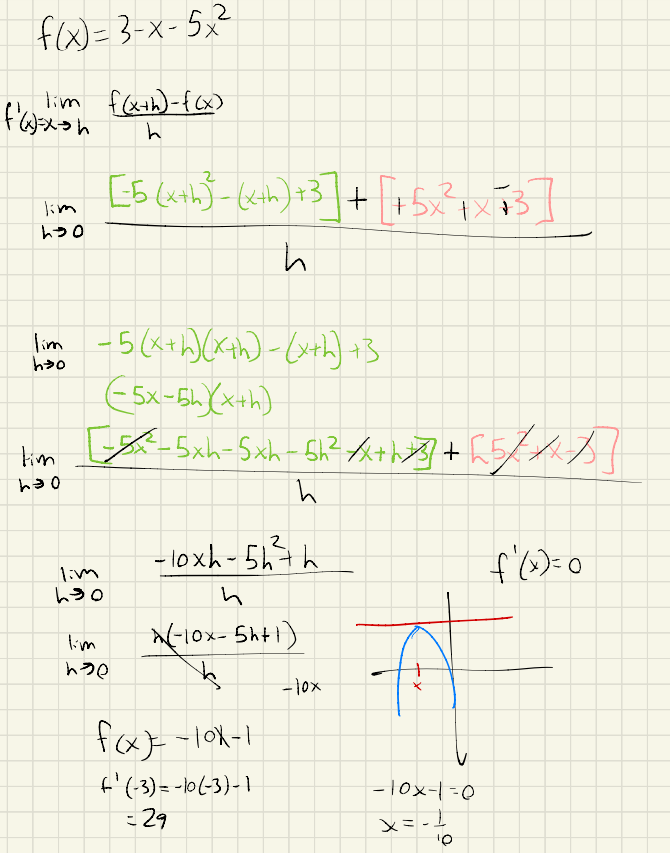 f(x) = 3 - x - 5x²
f'(x) = lim x→h (f(x+h) - f(x)) / h
lim h→0 ([-5(x+h)² - (x+h) + 3] + [+5x² + x - 3]) / h
lim h→0 -5(x+h)(x+h) - (x+h) + 3
(-5x - 5h)(x+h)
lim h→0 ([-5x² - 5xh - 5xh - 5h² - x + h + 3] + [5x² + x - 3]) / h
lim h→0 (-10xh - 5h² + h) / h
f'(x) = 0
lim h→0 h(-10x - 5h + 1) / h
-10x
x
f(x) = -10x - 1
f'(-3) = -10(-3) - 1
= 29
-10x - 1 = 0
x = -1/10